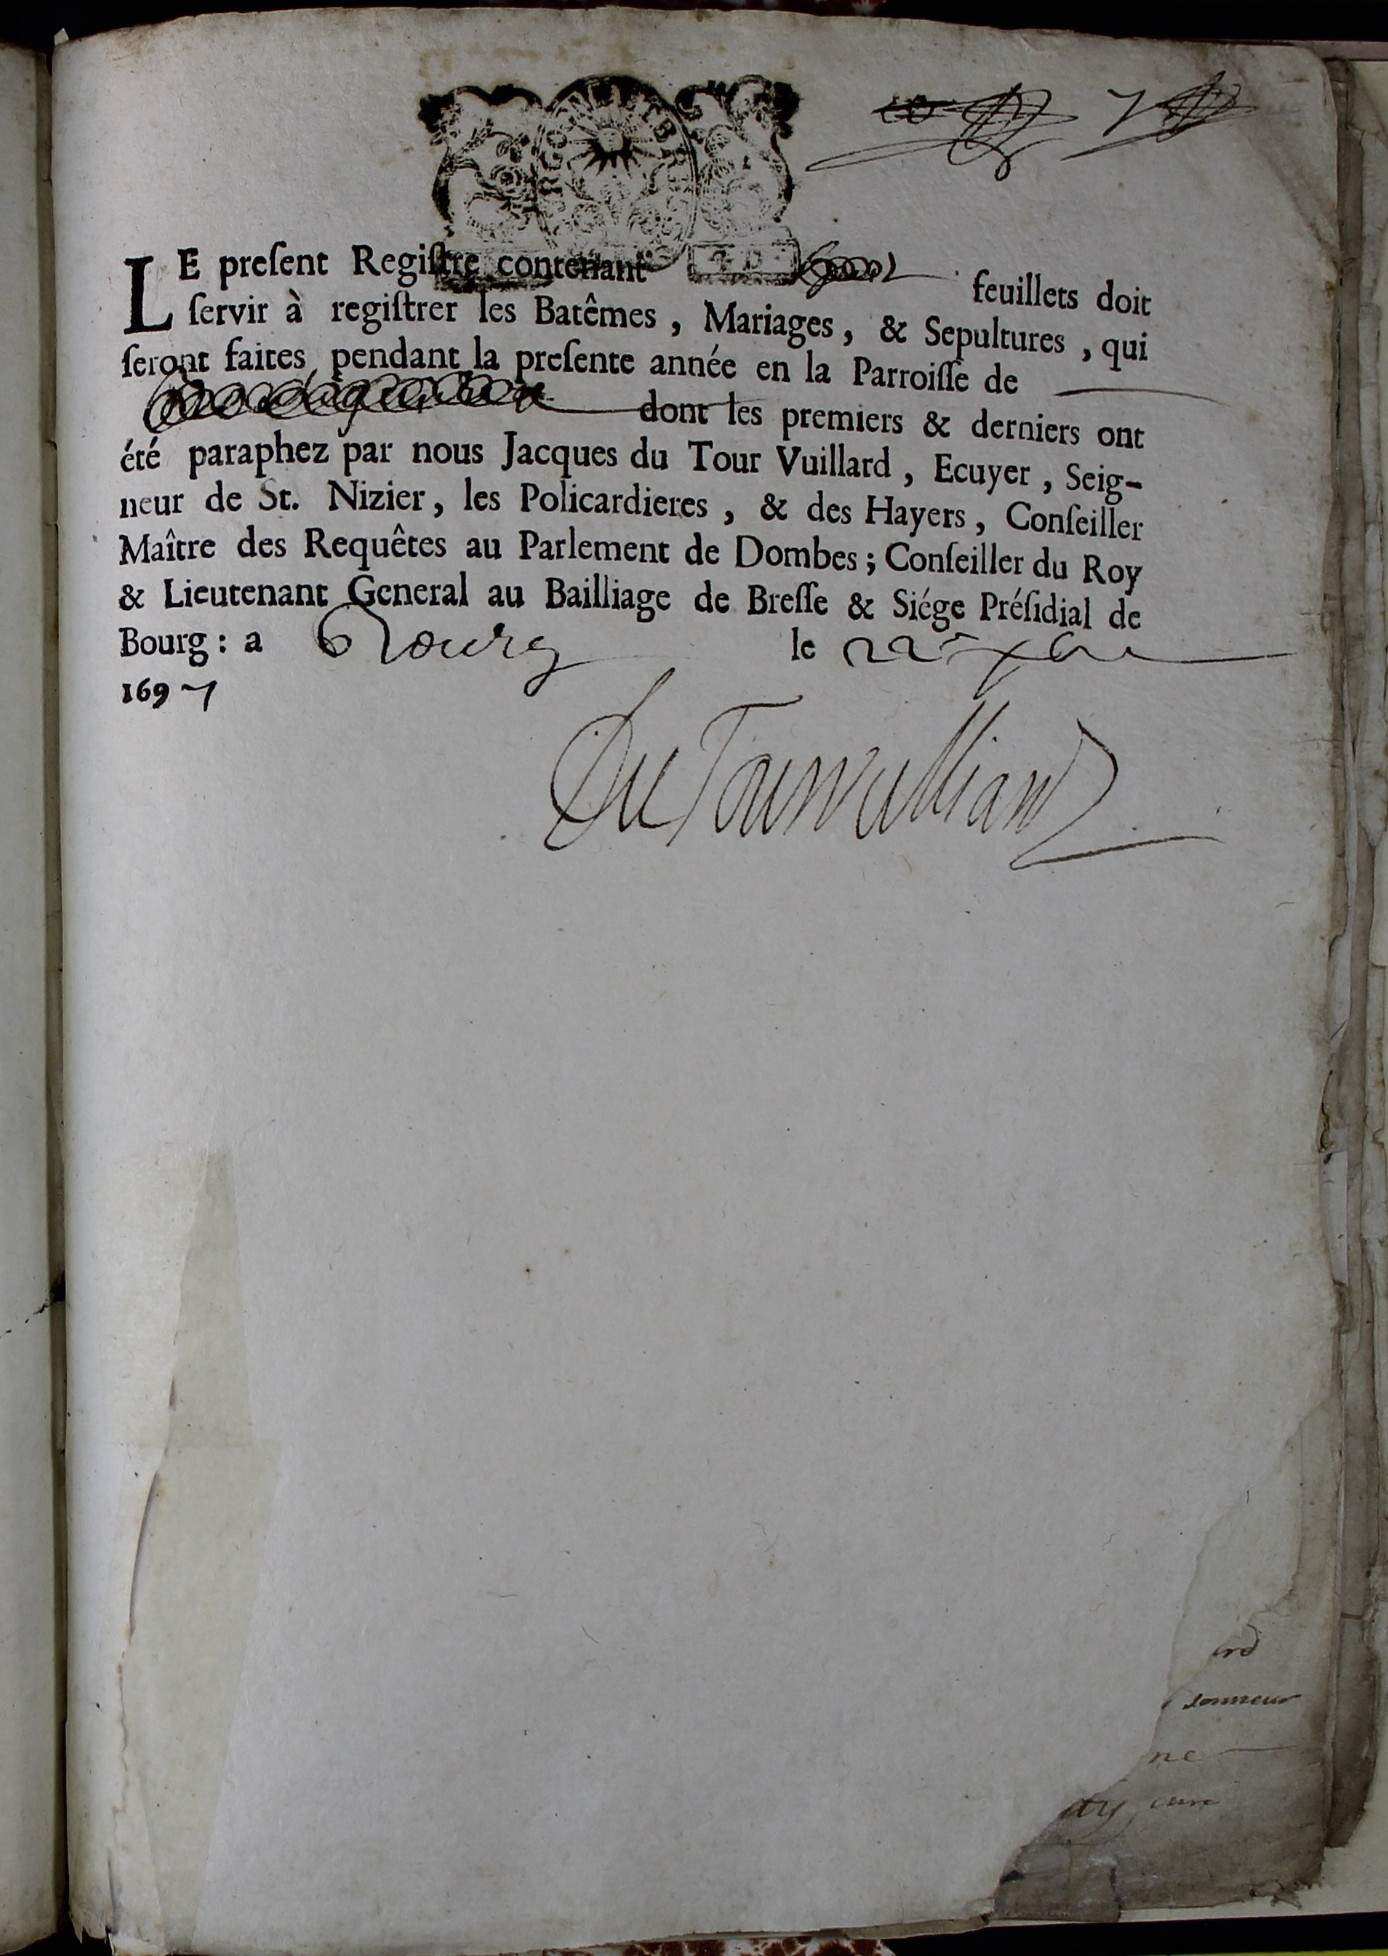 7
LE preſent Regiſtre contenant feuillets doit
ſervir à regiſtrer les Batêmes, Mariages, & Sepultures, qui
ſeront faites pendant la preſente année en la Parroiſſe de
dont les premiers & derniers ont
été paraphez par nous Jacques du Tour Vuillard, Ecuyer, Seig-
neur de St. Nizier, les Policardieres, & des Hayers, Conſeiller
Maître des Requêtes au Parlement de Dombes; Conſeiller du Roy
& Lieutenant General au Bailliage de Breſſe & Siége Préſidial de
Bourg: a Bourg le 22e xbre
1697
DuTourvulliard
ne
cure